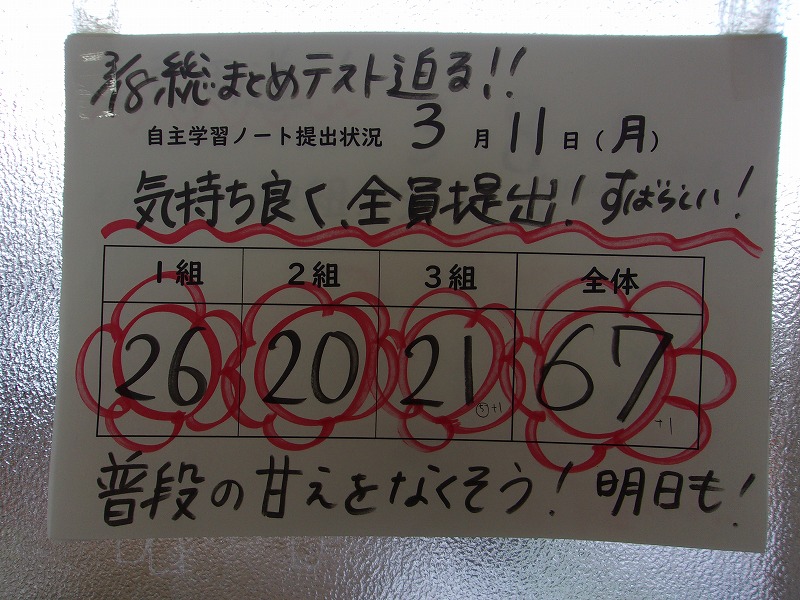 3/18総まとめテスト迫る!!
自主学習ノート提出状況 3月11日(月)
気持ち良く、全員提出!すばらしい!
1組 2組 3組 全体
26 20 21 67
⑤+1 +1
普段の甘えをなくそう!明日も!